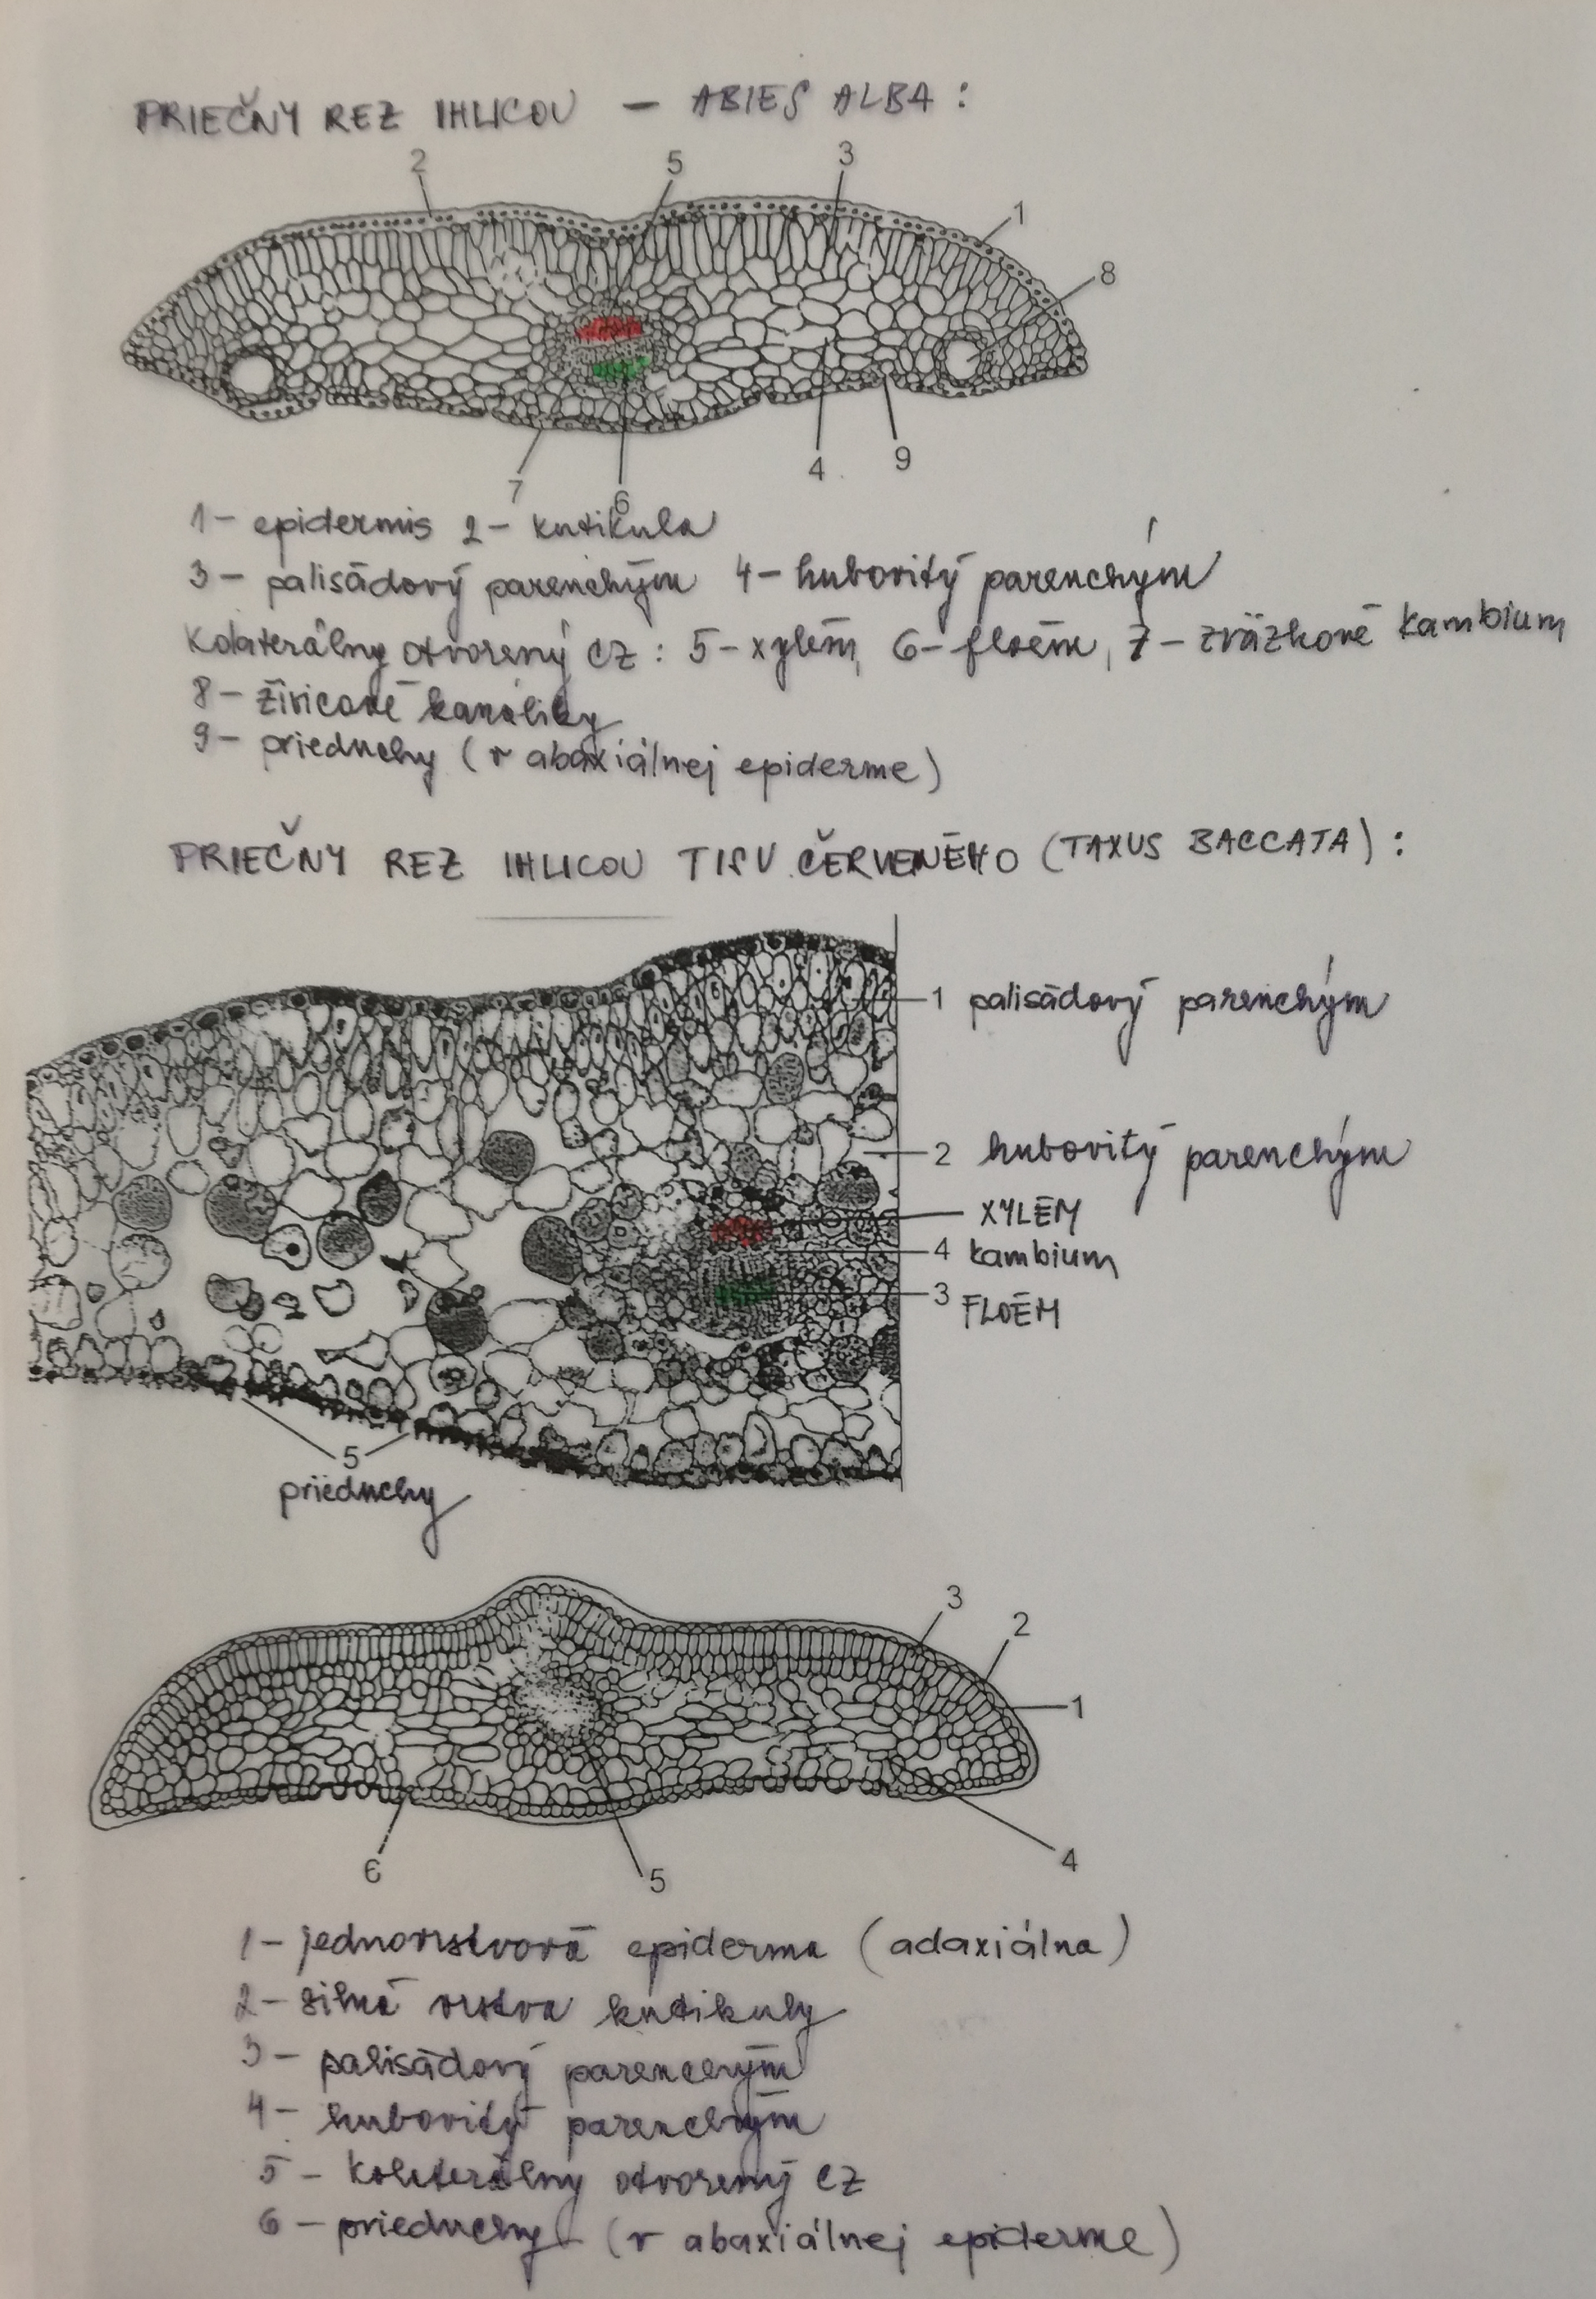 PRIEČNY REZ IHLICOU — ABIES ALBA :
2 5 3
1
8
7 6 4 9
1 - epidermis 2 - kutikula
3 - palisádový parenchým 4 - hubovitý parenchým
Kolaterálny otvorený CZ : 5 - xylém, 6 - floém, 7 - zväzkové kambium
8 - živicové kanáliky
9 - prieduchy (v abaxiálnej epiderme)
PRIEČNY REZ IHLICOU TISU ČERVENÉHO (TAXUS BACCATA) :
1 palisádový parenchým
2 hubovitý parenchým
XYLÉM
4 kambium
3 FLOÉM
5
prieduchy
3
2
1
6 5 4
1 - jednovrstvová epiderma (adaxiálna)
2 - silná vrstva kutikuly
3 - palisádový parenchým
4 - hubovitý parenchým
5 - kolaterálny otvorený CZ
6 - prieduchy (v abaxiálnej epiderme)